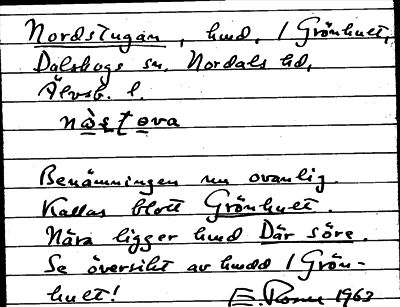 Nordstugan, hmd, i Grönhult,
Dalskogs sn. Nordals hd,
Älvsb. l.
nàṣṭova
Benämningen nu ovanlig.
Kallas blott Grönhult.
Nära ligger hmd Där söre.
Se översikt av hmdd i Grön-
hult!
E. 1963